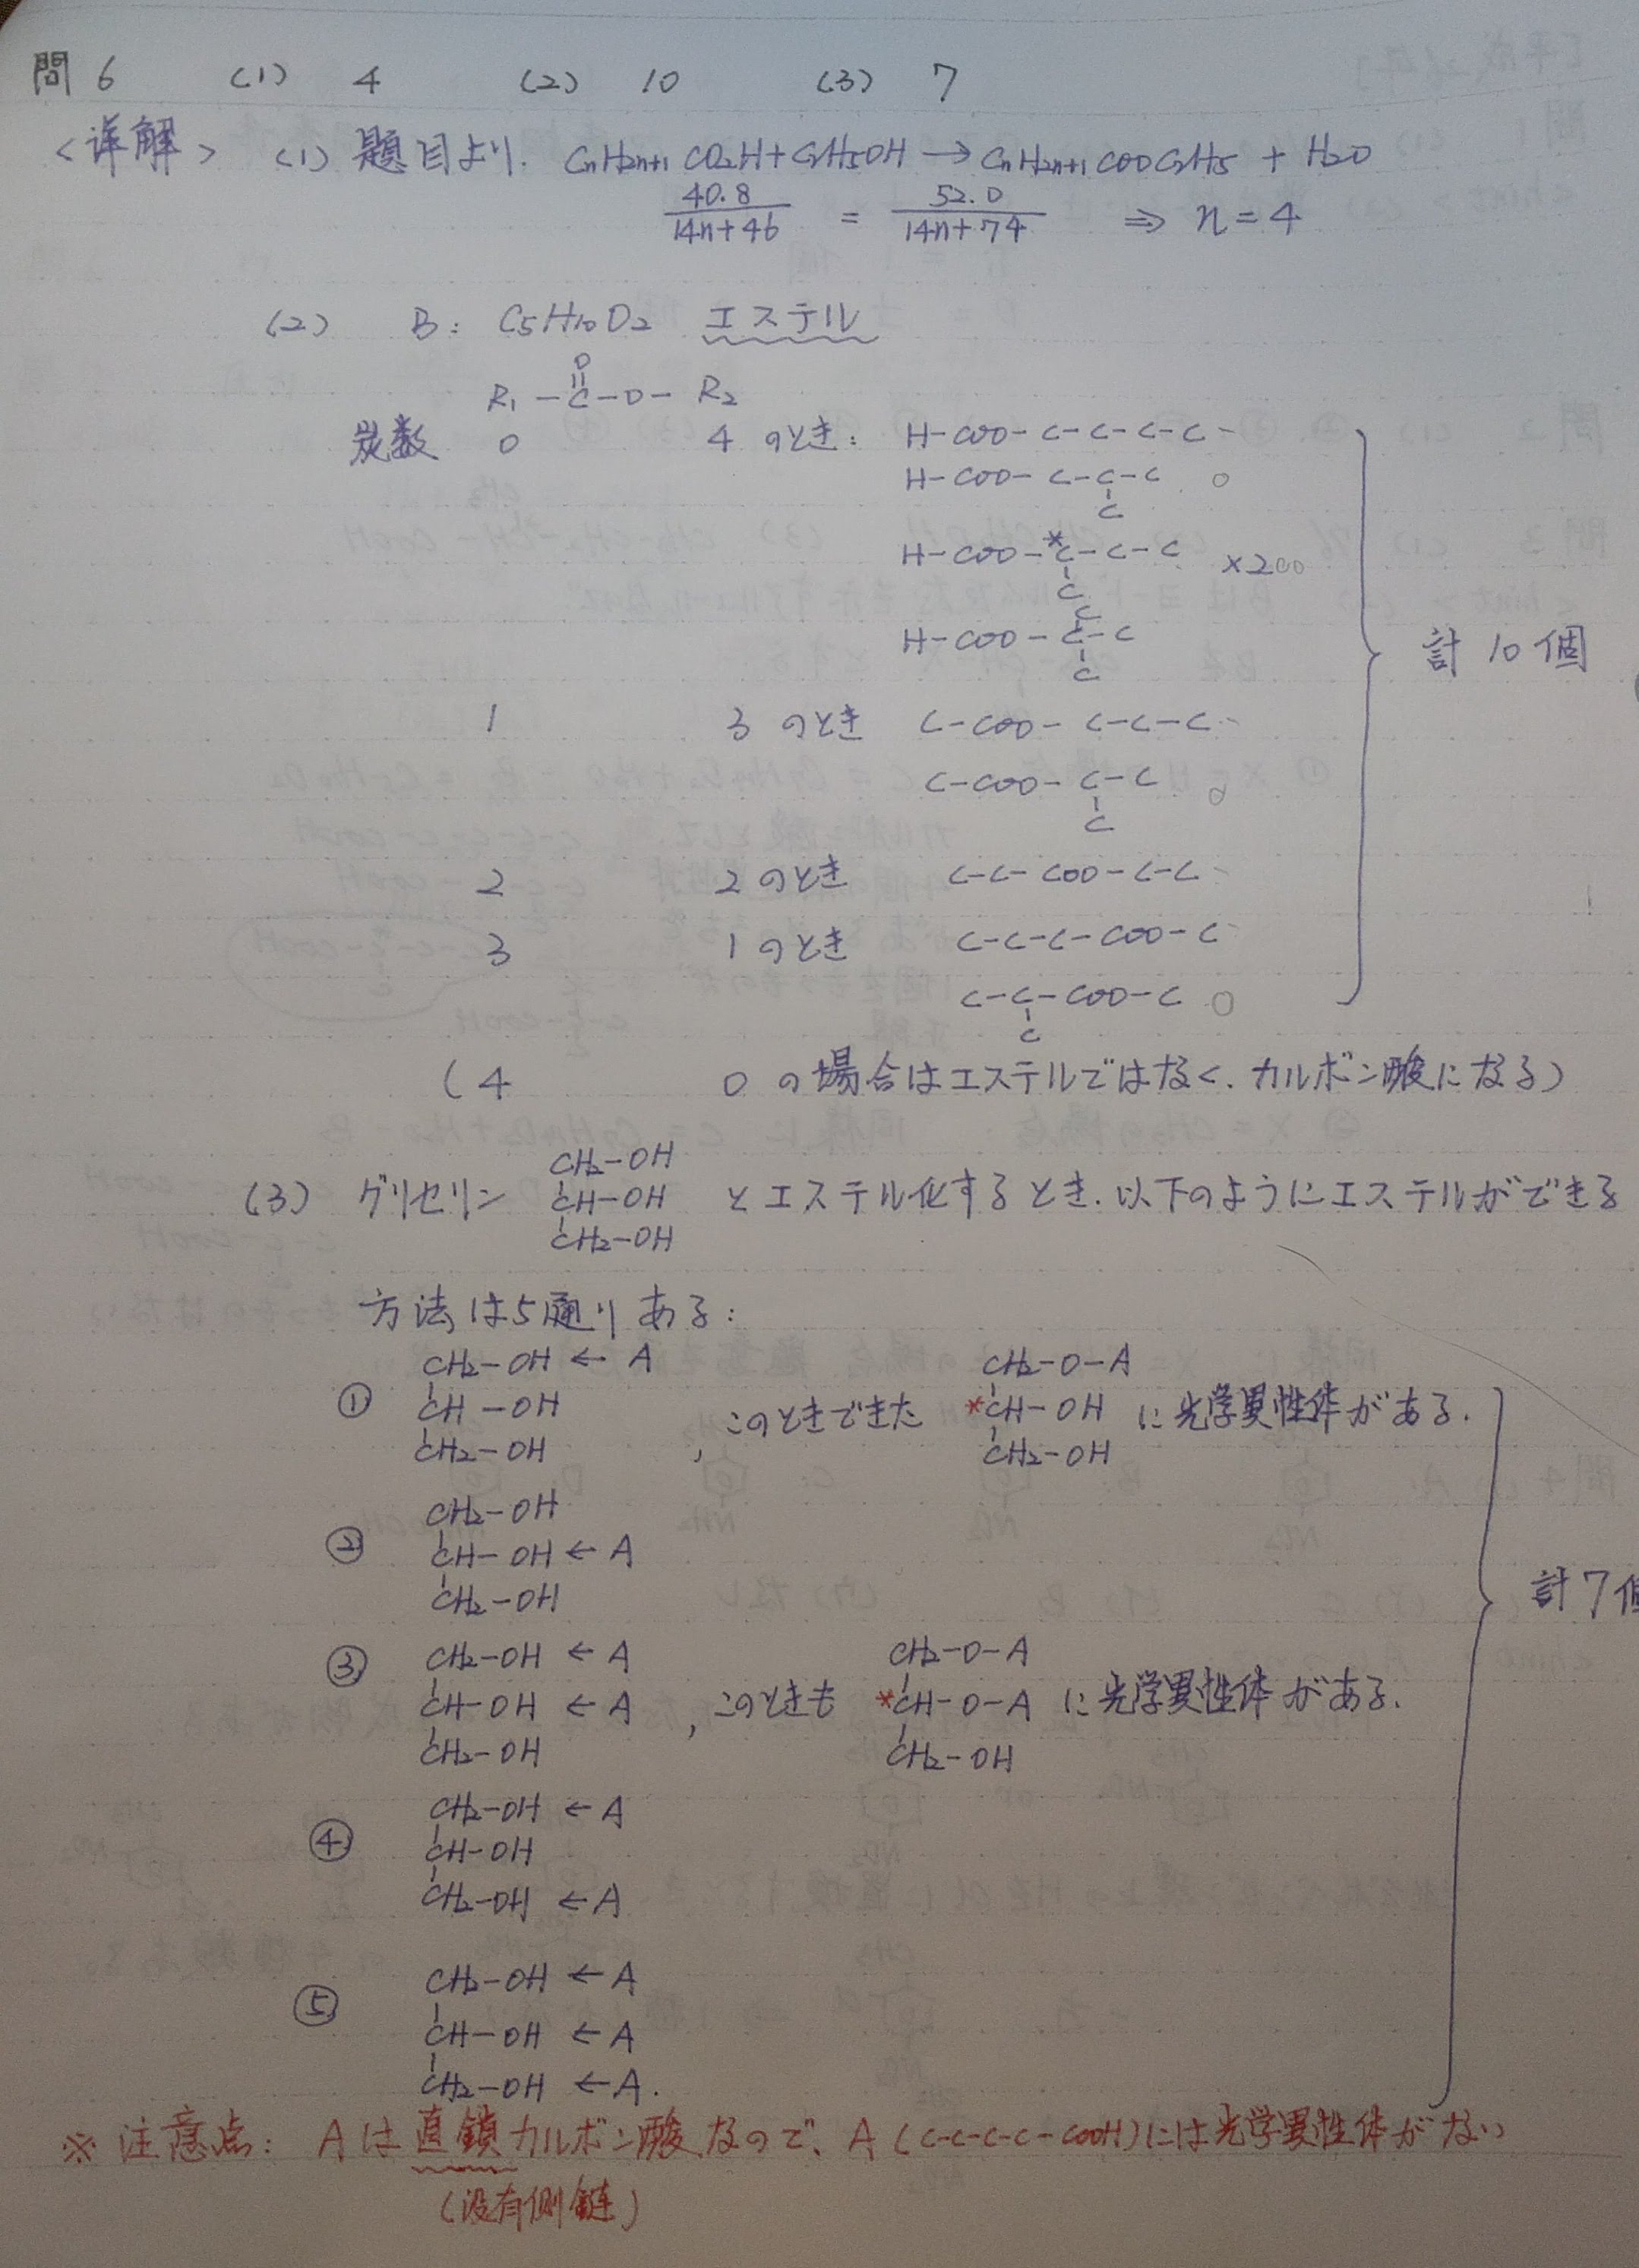 問6 (1) 4 (2) 10 (3) 7
<详解> (1) 題目より. CnH2n+1CO2H+C2H5OH → CnH2n+1COOC2H5 + H2O
40.8/14n+46 = 52.0/14n+74 ⇒ n=4
(2) B: C5H10O2 エステル
O
R1-C-O-R2
炭数 0 4のとき: H-COO-C-C-C-C
H-COO-C-C-C
C
H-COO-*C-C-C ×2
C
C
H-COO-C-C
C
計10個
1 3のとき C-COO-C-C-C
C-COO-C-C
C
2 2のとき C-C-COO-C-C
3 1のとき C-C-C-COO-C
C-C-COO-C
C
(4 0の場合はエステルではなく.カルボン酸になる)
CH2-OH
(3) グリセリン CH-OH とエステル化するとき.以下のようにエステルができる
CH2-OH
方法は5通りある:
CH2-OH ← A CH2-O-A
① CH-OH , このときできた *CH-OH に光学異性体がある.
CH2-OH CH2-OH
CH2-OH
② CH-OH ← A
CH2-OH
計7個
③ CH2-OH ← A CH2-O-A
CH-OH ← A , このときも *CH-O-A に光学異性体がある.
CH2-OH CH2-OH
CH2-OH ← A
④ CH-OH
CH2-OH ← A
CH2-OH ← A
⑤ CH-OH ← A
CH2-OH ← A.
※ 注意点: Aは直鎖カルボン酸なので、A (C-C-C-C-COOH)には光学異性体がない
(没有侧鏈)